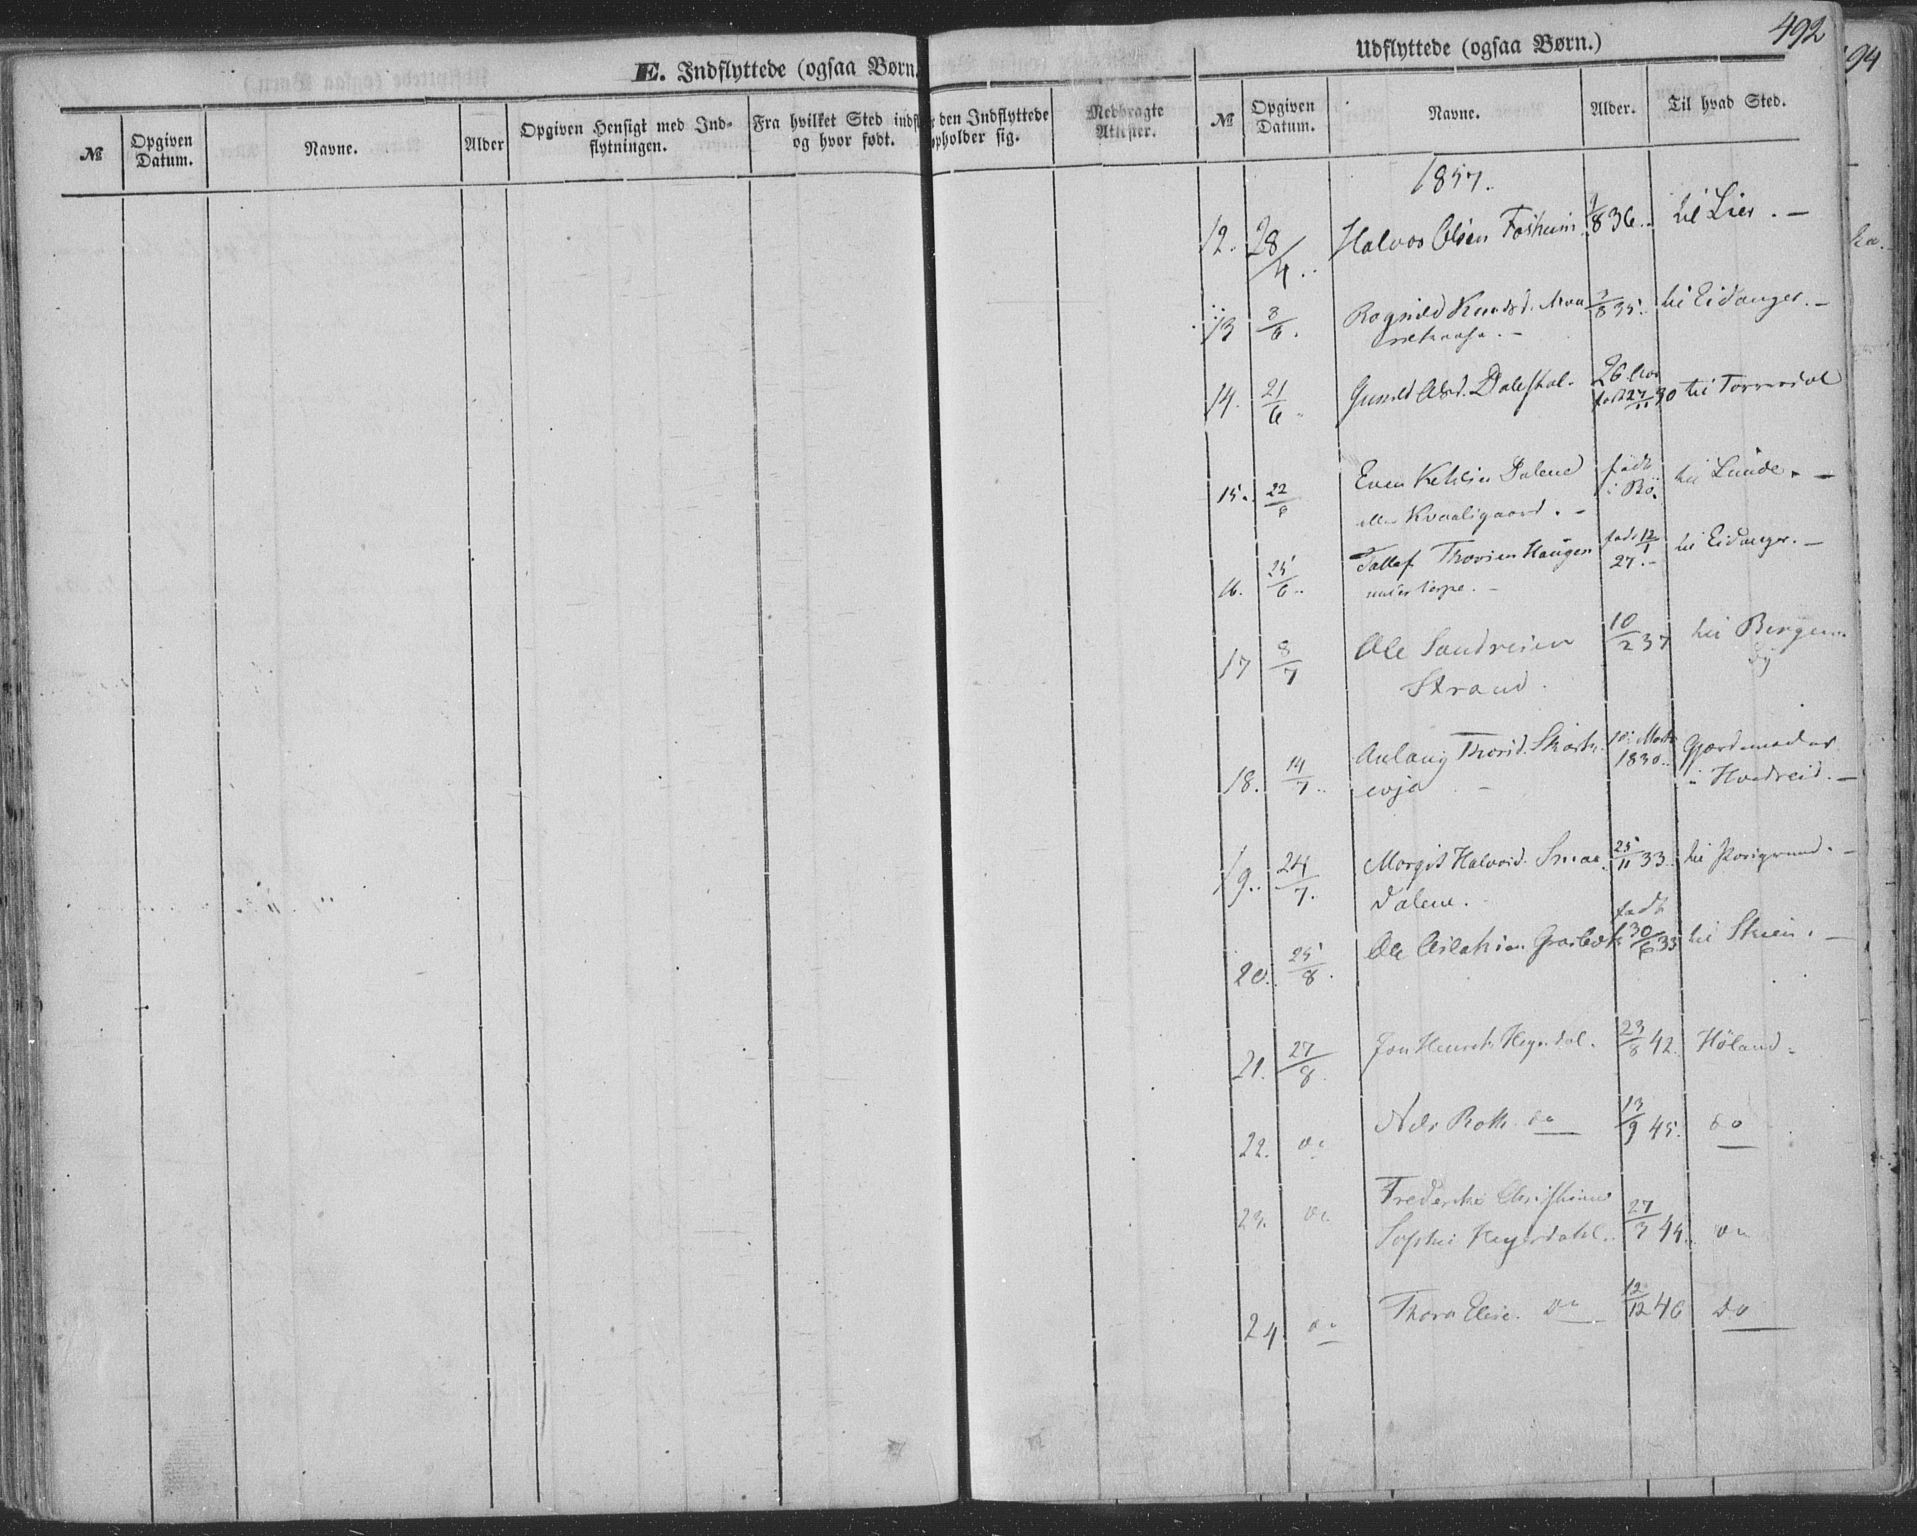 492
94
E. Indflyttede (ogsaa Børn.
Udflyttede (ogsaa Børn.)
№
Opgiven Datum.
Navne.
Alder
Opgiven Hensigt med Ind-
flytningen.
Fra hvilket Sted indfl
og hvor født.
den Indflyttede
pholder sig.
Medbragte
Attester.
№
Opgiven
Datum.
Navne.
Alder.
Til hvad Sted.
1857.
12. 28/4.. Halvor Olsen Fosheim 7/8 36.. til Lier. —
13 3/6. Ragnild Knudsd. 3/8 35. til Eidanger. —
14. 21/6.. Gunild Olsd. Dalskal. 26 Aar
født 27/11 30 til Tørrisdal
15. 22/6 Even Dalene født
i Bø. til Lunde. —
eller Kvaaligaard. —
16. 25/6.. Tallef Thorsen Haugen født 12/1
27.- til Eidanger. —
under Torpe. —
17 8/7 Ole Sandersen 10/2 37 til Bergens
By
Strand.
18. 14/7.. Aslaug Thorsd. 10 Marts
1830.. Gjordemoder
i Hvidreid. —
evja —
19.. 24/7. Margit Halvorsd. Smaa 25/11 33. til Porsgrund. —
dalene.
20. 25/8. Ole Aslaksen født
30/6 33 til Skien. —
21. 27/8. Jon Henrik Heyerdal. 23/8 42. Høland.
22. do Nils Roth do 13/9 45. do
23. do Frederikke Christiane
Sophie Heyerdahl.. 27/3 44.. do
24 do Thora Elise. do 12/12 46 do